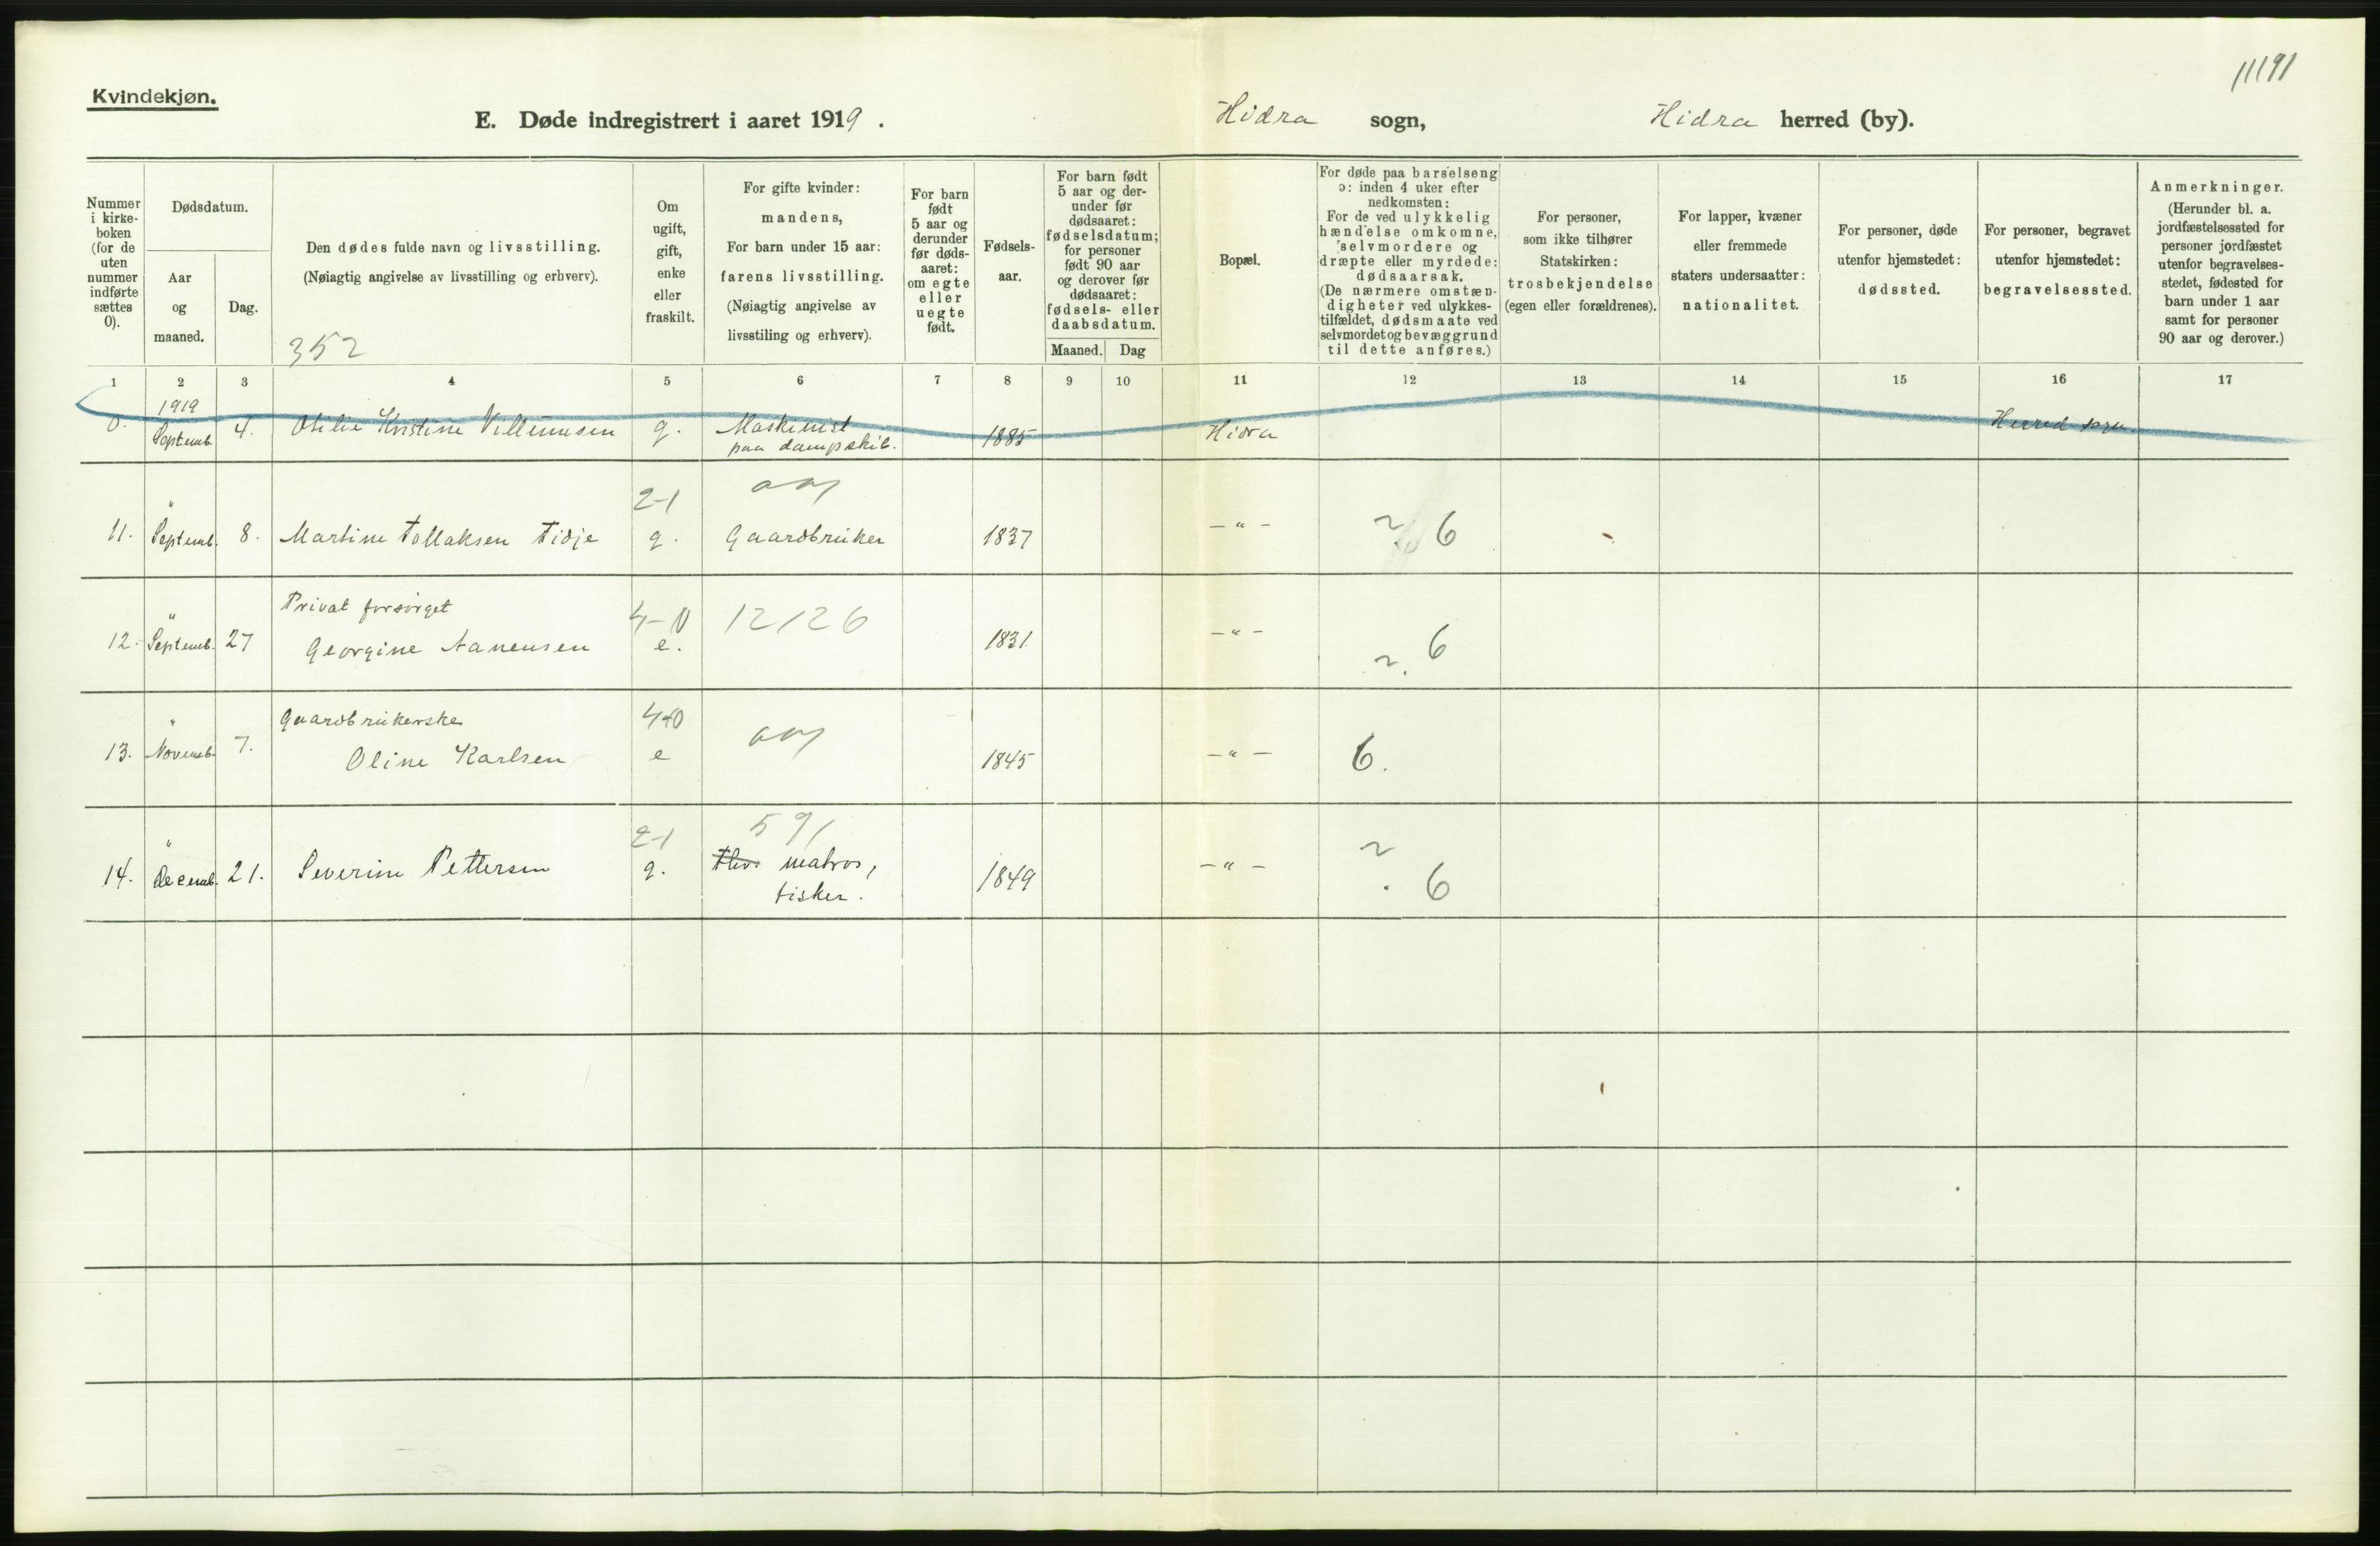 11191
Kvindekjøn.
E. Døde indregistrert i aaret 1919. Hidra sogn, Hidra herred (by).
Nummer i kirke- boken (for de uten nummer indførte sættes 0).
Dødsdatum.
Aar og maaned.
Dag.
Den dødes fulde navn og livsstilling.
(Nøiagtig angivelse av livsstilling og erhverv).
352
Om ugift, gift, enke eller fraskilt.
For gifte kvinder: mandens,
For barn under 15 aar: farens livsstilling.
(Nøiagtig angivelse av livsstiling og erhverv).
For barn født 5 aar og derunder før døds- aaret: om egte eller uegte født.
Fødsels- aar.
For barn født 5 aar og der- under før dødsaaret: fødselsdatum; for personer født 90 aar og derover før dødsaaret: fødsels- eller daabsdatum.
Maaned. Dag
Bopæl.
For døde paa barselseng ɔ: inden 4 uker efter nedkomsten:
For de ved ulykkelig hændelse omkomne, selvmordere og dræpte eller myrdede: dødsaarsak.
(De nærmere omstæn- digheter ved ulykkes- tilfældet, dødsmaate ved selvmordet og bevæggrund til dette anføres.)
For personer, som ikke tilhører Statskirken: trosbekjendelse (egen eller forældrenes).
For lapper, kvæner eller fremmede staters undersaatter: nationalitet.
For personer, døde utenfor hjemstedet: dødssted.
For personer, begravet utenfor hjemstedet: begravelsessted.
Anmerkninger.
(Herunder bl. a. jordfæstelsessted for personer jordfæstet utenfor begravelses- stedet, fødested for barn under 1 aar samt for personer 90 aar og derover.)
1 2 3 4 5 6 7 8 9 10 11 12 13 14 15 16 17
1919
0. Septemb. 4. Otilie Kristine Villumsen g. Maskinist 1885 Hidra Herred sogn
paa dampskib.
2-1
11. " Septemb. 8. Martine Tollaksen Tidje g. Gaardbruker 1837 -"- 6
Privat forsørget 4-0 12126
12. " Septemb. 27 Georgine Aanensen e. 1831. -"- 6
Gaardbrukerske 4-0
13. " Novemb. 7. Oline Karlsen e 1845 -"- 6.
2-1 591
14. " Decemb. 21. Severine Pettersen g. matros, 1849 -"- 6
fisker.